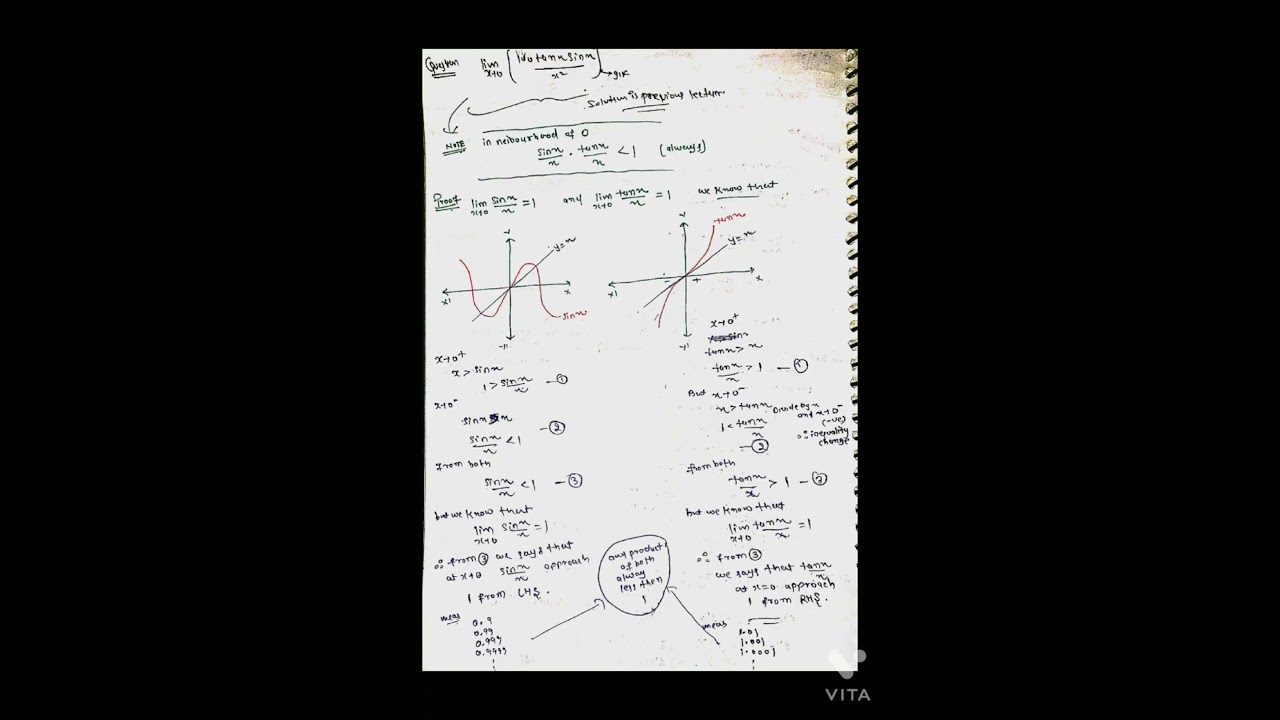 Question lim x→0 [100 tanx sinx / x²] → GIF
Solution is previous lecture.
NOTE in neibourhood of 0
sinx/x · tanx/x < 1 (always)
Proof lim x→0 sinx/x = 1 and lim x→0 tanx/x = 1 we know that
y
y=x
x'
x
sinx
-y'
y
tanx
y=x
- +
x'
x
-y'
x→0⁺
x > sinx
1 > sinx/x —①
x→0⁻
sinx > x
sinx/x < 1 —②
from both
sinx/x < 1 —③
but we know that
lim x→0 sinx/x = 1
∴ from ③ we says that
at x→0 sinx/x approach
1 from LHS.
means
0.9
0.99
0.999
0.9999
and product
of both
alway
less then
1
x→0⁺
tanx > x
tanx/x > 1 —①
But x→0⁻
x > tanx Divide by x
and x→0⁻
(-ve)
∴ inequality
change
1 < tanx/x
—②
from both
tanx/x > 1 —③
but we know that
lim x→0 tanx/x = 1
∴ from ③
we says that tanx/x
at x=0 approach
1 from RHS.
means
1.01
1.001
1.0001
VITA